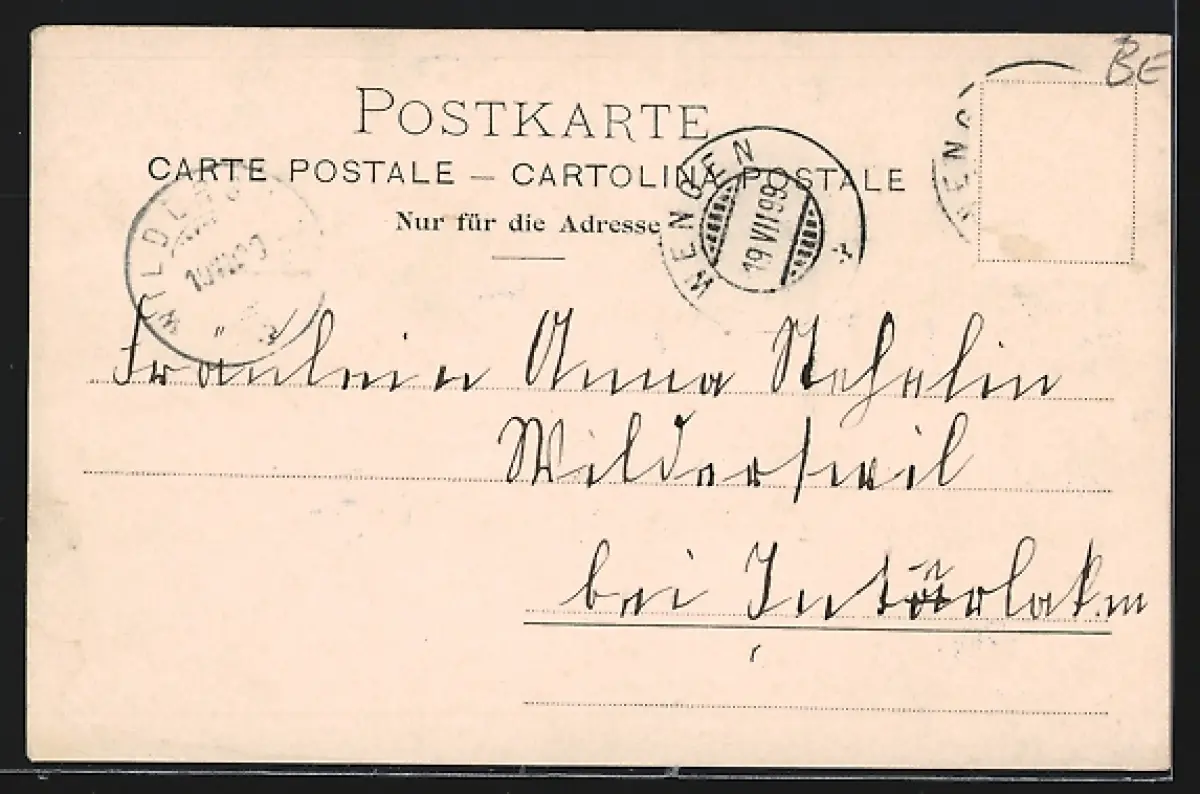 BE
POSTKARTE
CARTE POSTALE — CARTOLINA POSTALE
Nur für die Adresse
WENGEN
19 VII 99
WENG
WILDERS
Fräulein Anna Stehelin
Wilderswil
bei Interlaken